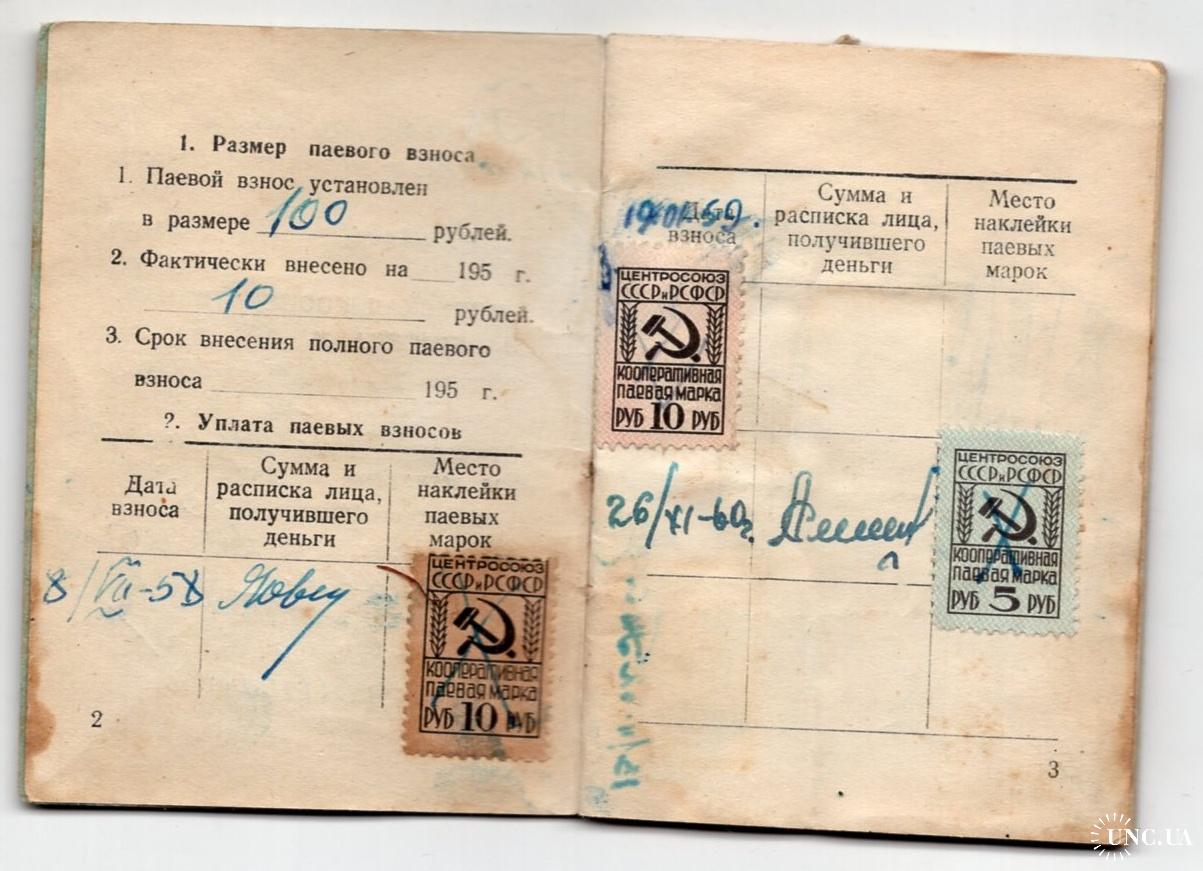 1. Размер паевого взноса
1. Паевой взнос установлен
в размере 100 рублей.
2. Фактически внесено на 195 г.
10 рублей.
3. Срок внесения полного паевого
взноса 195 г.
2. Уплата паевых взносов
Дата взноса
Сумма и расписка лица, получившего деньги
Место наклейки паевых марок
8/VII-58
ЦЕНТРОСОЮЗ
СССР и РСФСР
КООПЕРАТИВНАЯ
ПАЕВАЯ МАРКА
РУБ 10 РУБ
2
Дата взноса
Сумма и расписка лица, получившего деньги
Место наклейки паевых марок
ЦЕНТРОСОЮЗ
СССР и РСФСР
КООПЕРАТИВНАЯ
ПАЕВАЯ МАРКА
РУБ 10 РУБ
26/XI-60г.
ЦЕНТРОСОЮЗ
СССР и РСФСР
КООПЕРАТИВНАЯ
ПАЕВАЯ МАРКА
РУБ 5 РУБ
3
UNC.UA